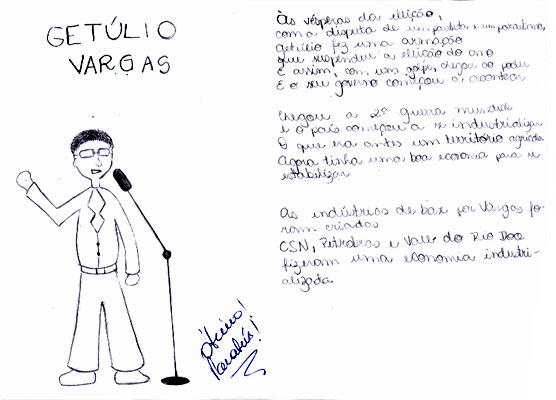 GETÚLIO
VARGAS
Às vésperas da eleição,
com a disputa de um paulista e um
Getúlio fez uma armação
que suspendeu a eleição do ano
E assim, com um golpe, chegou ao poder
E o seu governo começou a acontecer
Chegou a 2ª guerra mundial
e o país começou a se industrializar
O que era antes um território agrícola
Agora tinha uma boa economia para se
estabilizar
As indústrias de base por Vargas fo-
ram criadas
CSN, Petrobras e Vale do Rio Doce
fizeram uma economia industri-
alizada
Ótimo!
Parabéns!